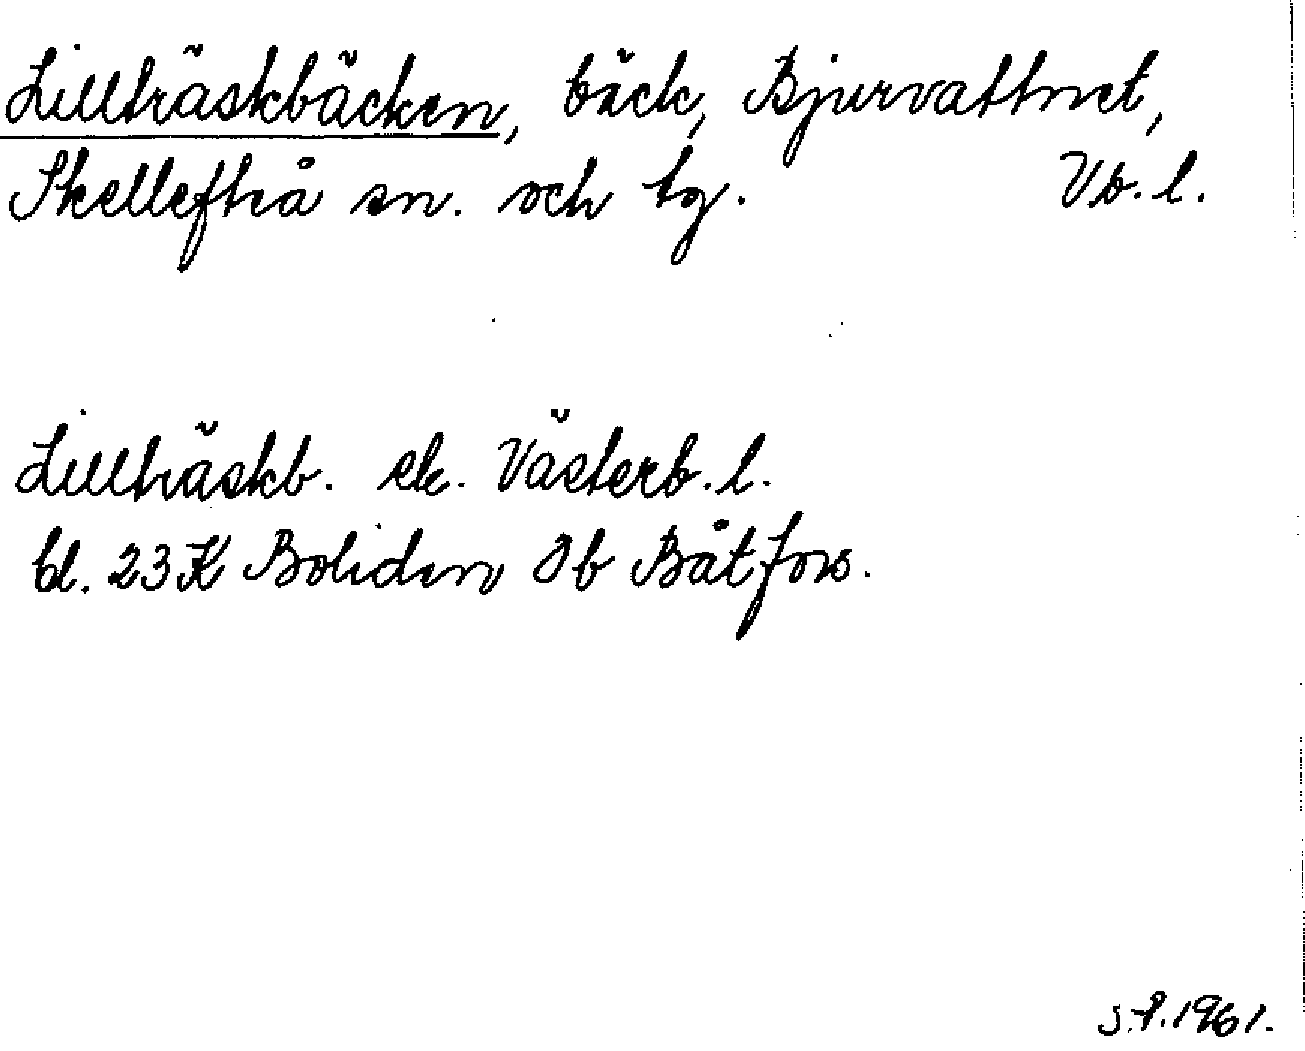 Lillträskbäcken, bäck, Bjurvattnet,
Skellefteå sn. och tg. Vb. l.
Lillträskb. ek. Västerb. l.
bl. 23K Boliden Ob Båtfors.
1961.